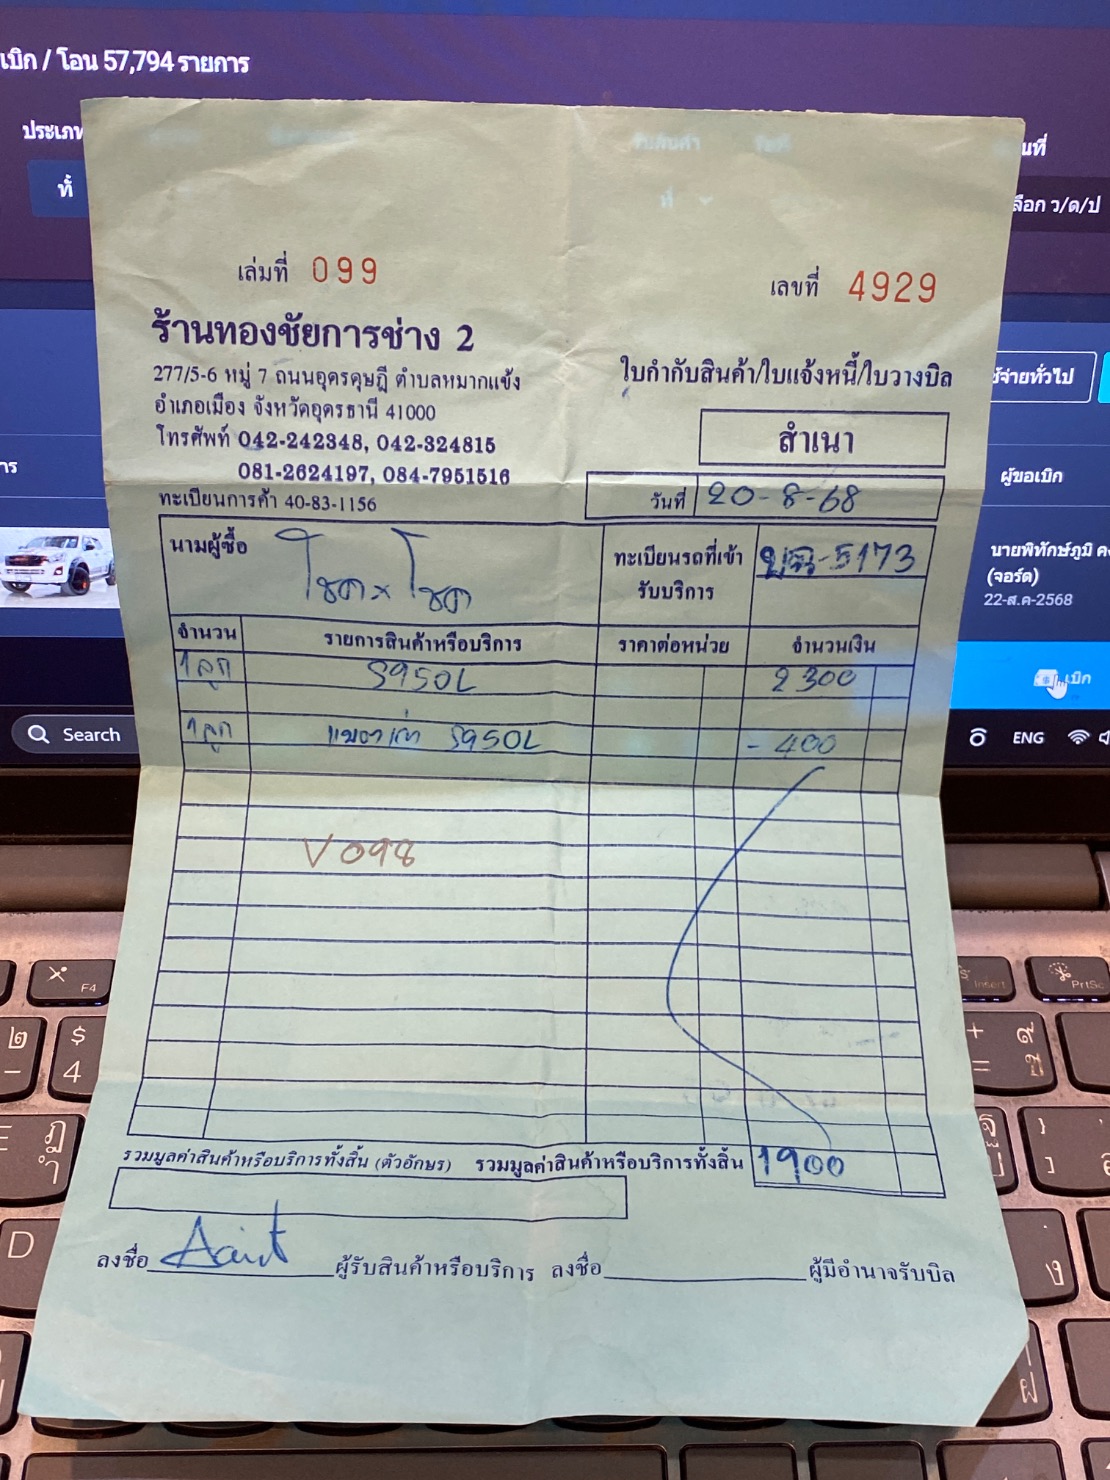 เบิก / โอน 57,794 รายการ
ประเภท
ทั้
นที่
ลือก ว/ด/ป
เล่มที่ 099
เลขที่ 4929
ร้านทองชัยการช่าง 2
277/5-6 หมู่ 7 ถนนอุดรดุษฎี ตำบลหมากแข้ง
อำเภอเมือง จังหวัดอุดรธานี 41000
โทรศัพท์ 042-242348, 042-324815
081-2624197, 084-7951516
ทะเบียนการค้า 40-83-1156
ใบกำกับสินค้า/ใบแจ้งหนี้/ใบวางบิล
สำเนา
วันที่ 20-8-68
ช้จ่ายทั่วไป
าร
ผู้ขอเบิก
นายพิทักษ์ภูมิ ค
(จอร์ด)
22-ส.ค-2568
เบิก
นามผู้ซื้อ โชค x โชค
ทะเบียนรถที่เข้า
รับบริการ
5173
จำนวน รายการสินค้าหรือบริการ ราคาต่อหน่วย จำนวนเงิน
1 ลูก S95DL 2300
1 ลูก แบตเก่า S95DL - 400
V098
รวมมูลค่าสินค้าหรือบริการทั้งสิ้น (ตัวอักษร) รวมมูลค่าสินค้าหรือบริการทั้งสิ้น 1900
ลงชื่อ ผู้รับสินค้าหรือบริการ ลงชื่อ ผู้มีอำนาจรับบิล
Search
ENG
F4
Insert
PrtSc
๒
-
$
4
+
=
๙
ช
ฎ
D
ง
ฝ